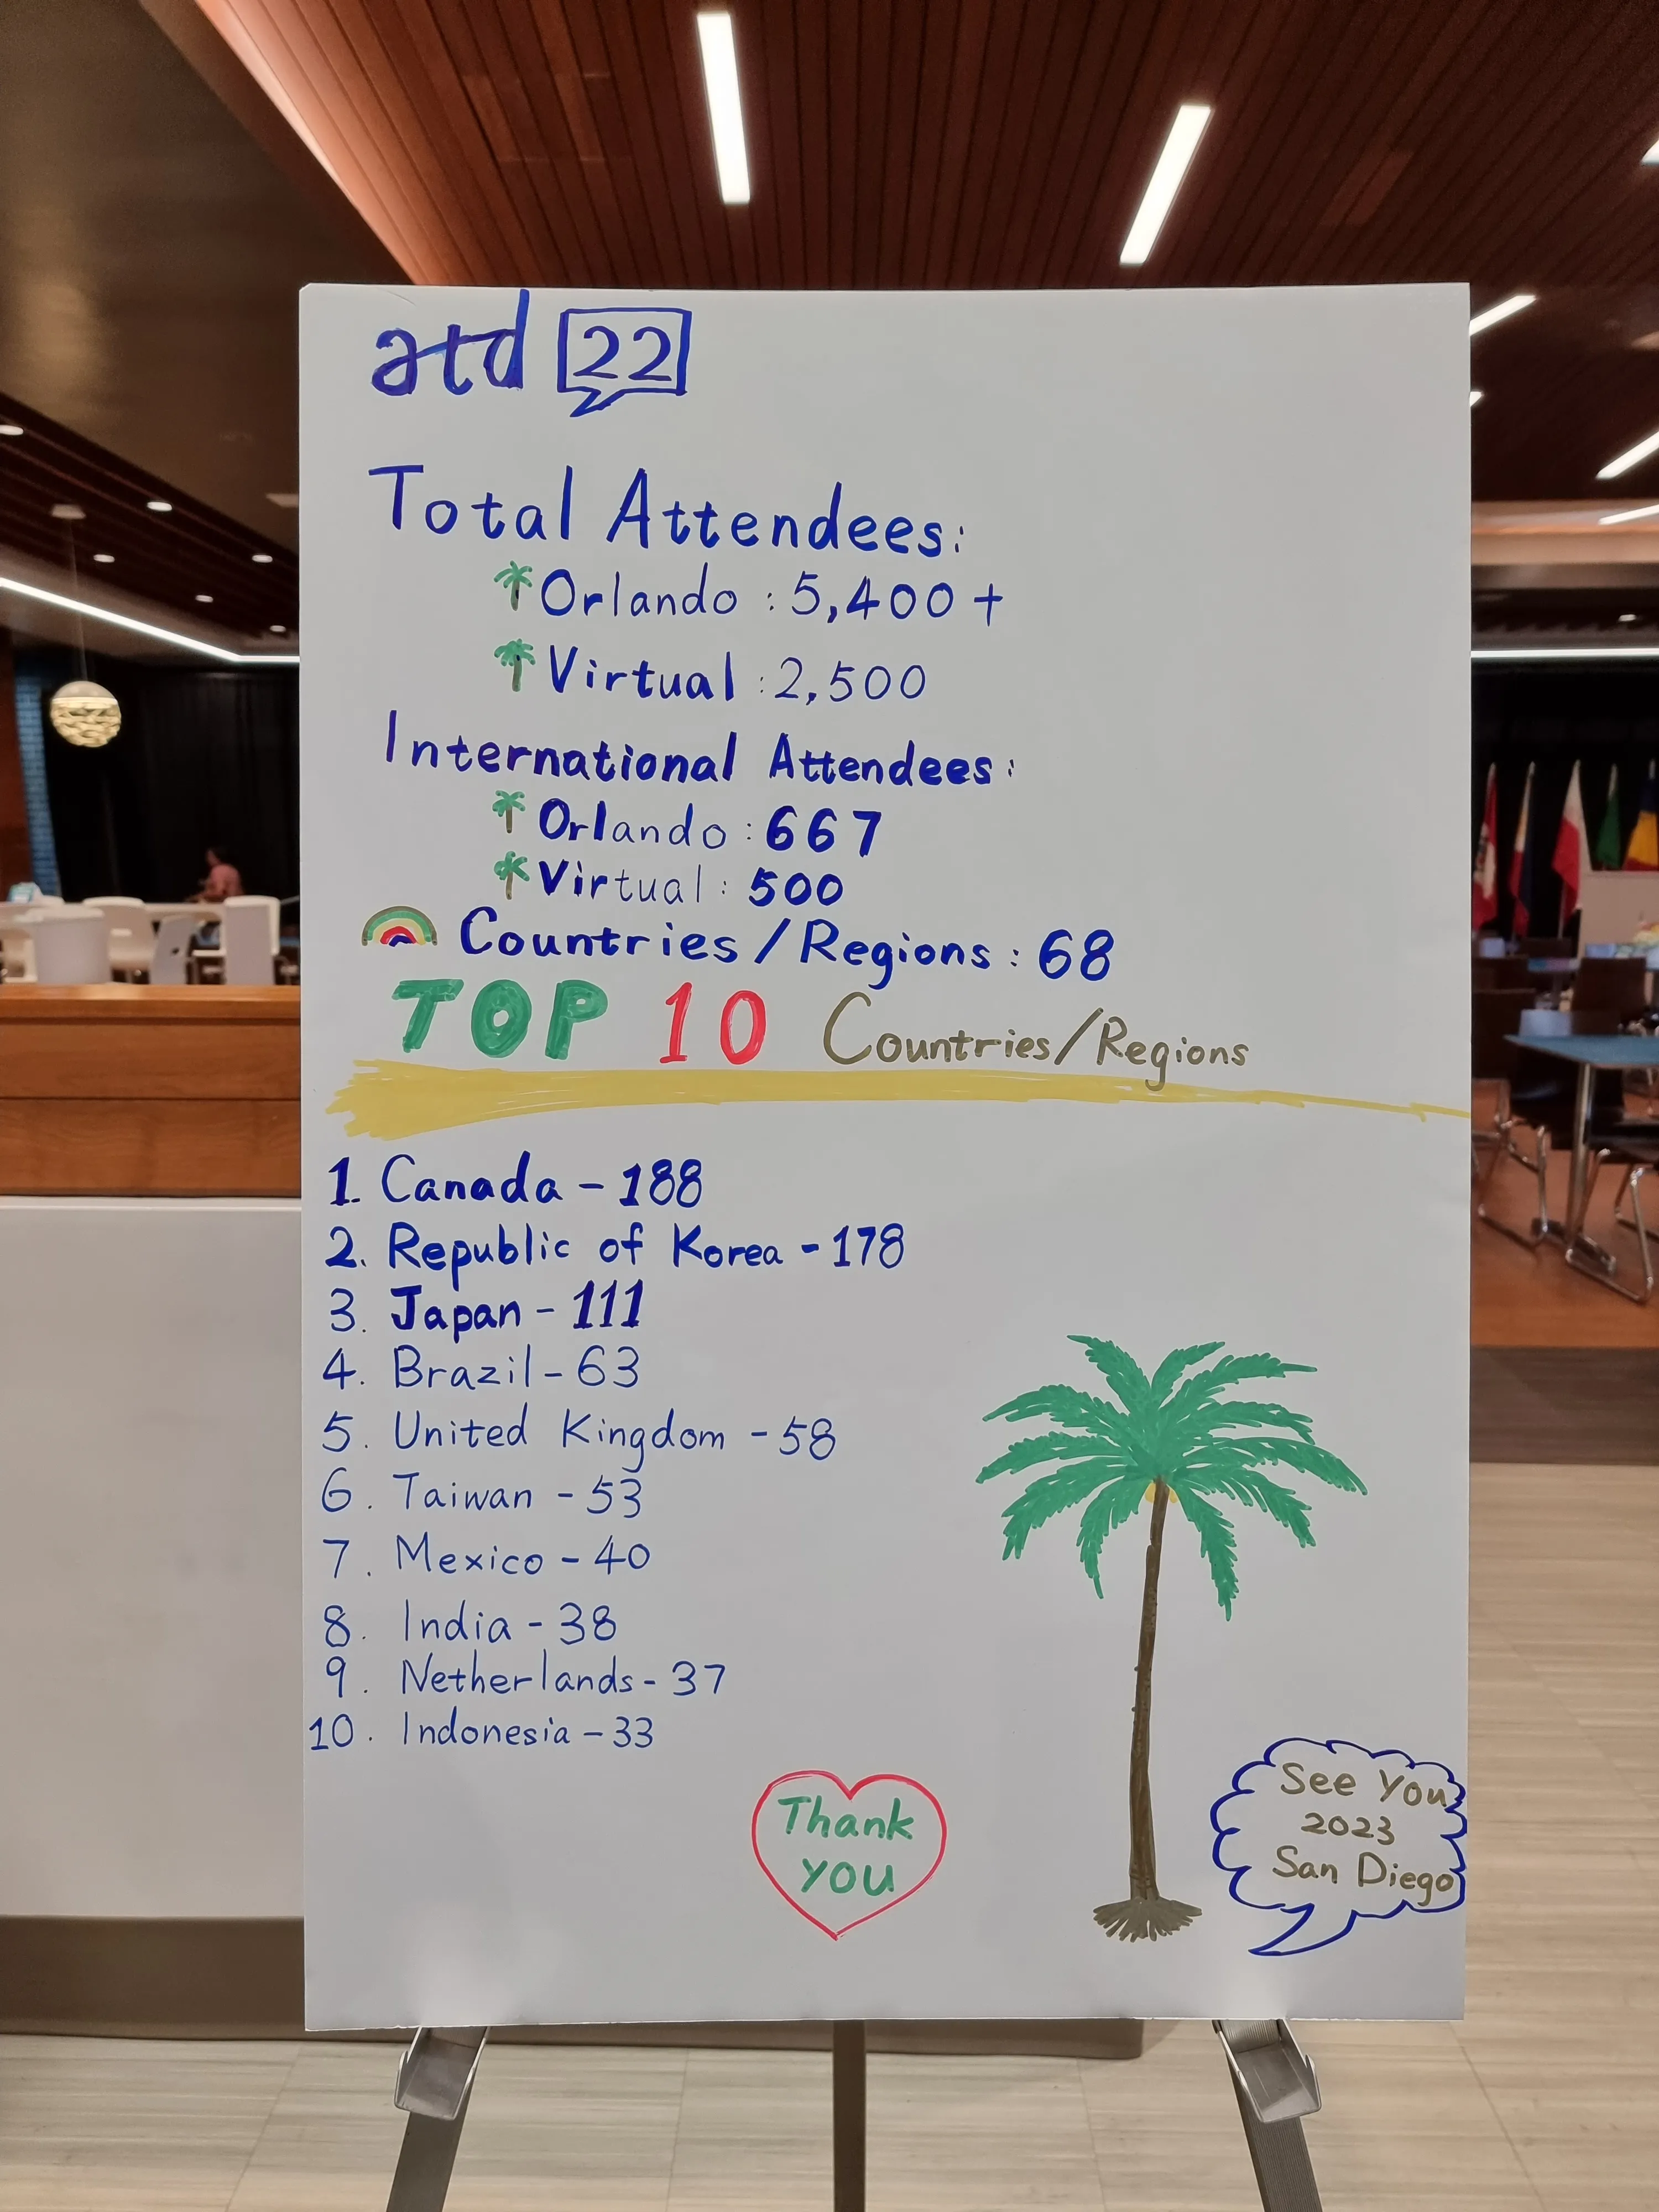 atd 22
Total Attendees:
Orlando : 5,400 +
Virtual : 2,500
International Attendees:
Orlando : 667
Virtual : 500
Countries/Regions : 68
TOP 10 Countries/Regions
1. Canada - 188
2. Republic of Korea - 178
3. Japan - 111
4. Brazil - 63
5. United Kingdom - 58
6. Taiwan - 53
7. Mexico - 40
8. India - 38
9. Netherlands - 37
10. Indonesia - 33
Thank
you
See You
2023
San Diego